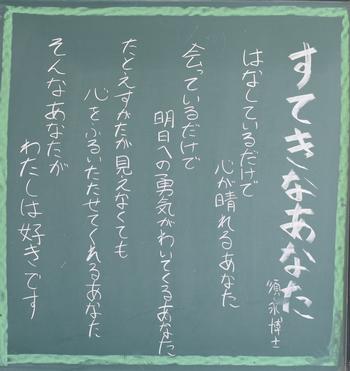 すてきなあなた
須永博士
はなしているだけで
心が晴れるあなた
会っているだけで
明日への勇気がわいてくるあなた
たとえすがたが見えなくても
心をふるいたたせてくれるあなた
そんなあなたが
わたしは好きです